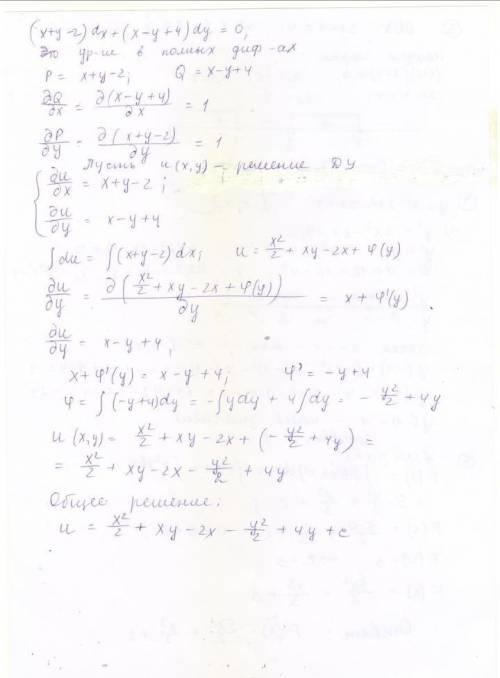 (x+y-2)dx+(x-y+4)dy=0;
Это ур-ие в полных диф-ах
P= x+y-2; Q= x-y+4
∂Q/∂x = ∂(x-y+4)/∂x = 1
∂P/∂y = ∂(x+y-2)/∂y = 1
Пусть u(x,y) — решение ДУ
{ ∂u/∂x = x+y-2;
∂u/∂y = x-y+4
∫du = ∫(x+y-2)dx; u= x²/2 + xy -2x+ φ(y)
∂u/∂y = ∂(x²/2 + xy -2x + φ(y))/∂y = x + φ'(y)
∂u/∂y = x-y+4;
x+φ'(y) = x-y+4; φ' = -y+4
φ = ∫(-y+4)dy = -∫ydy + 4∫dy = - y²/2 + 4y
u(x,y)= x²/2 + xy -2x + (- y²/2 + 4y) =
= x²/2 + xy -2x - y²/2 + 4y
Общее решение:
u = x²/2 + xy -2x - y²/2 + 4y + c